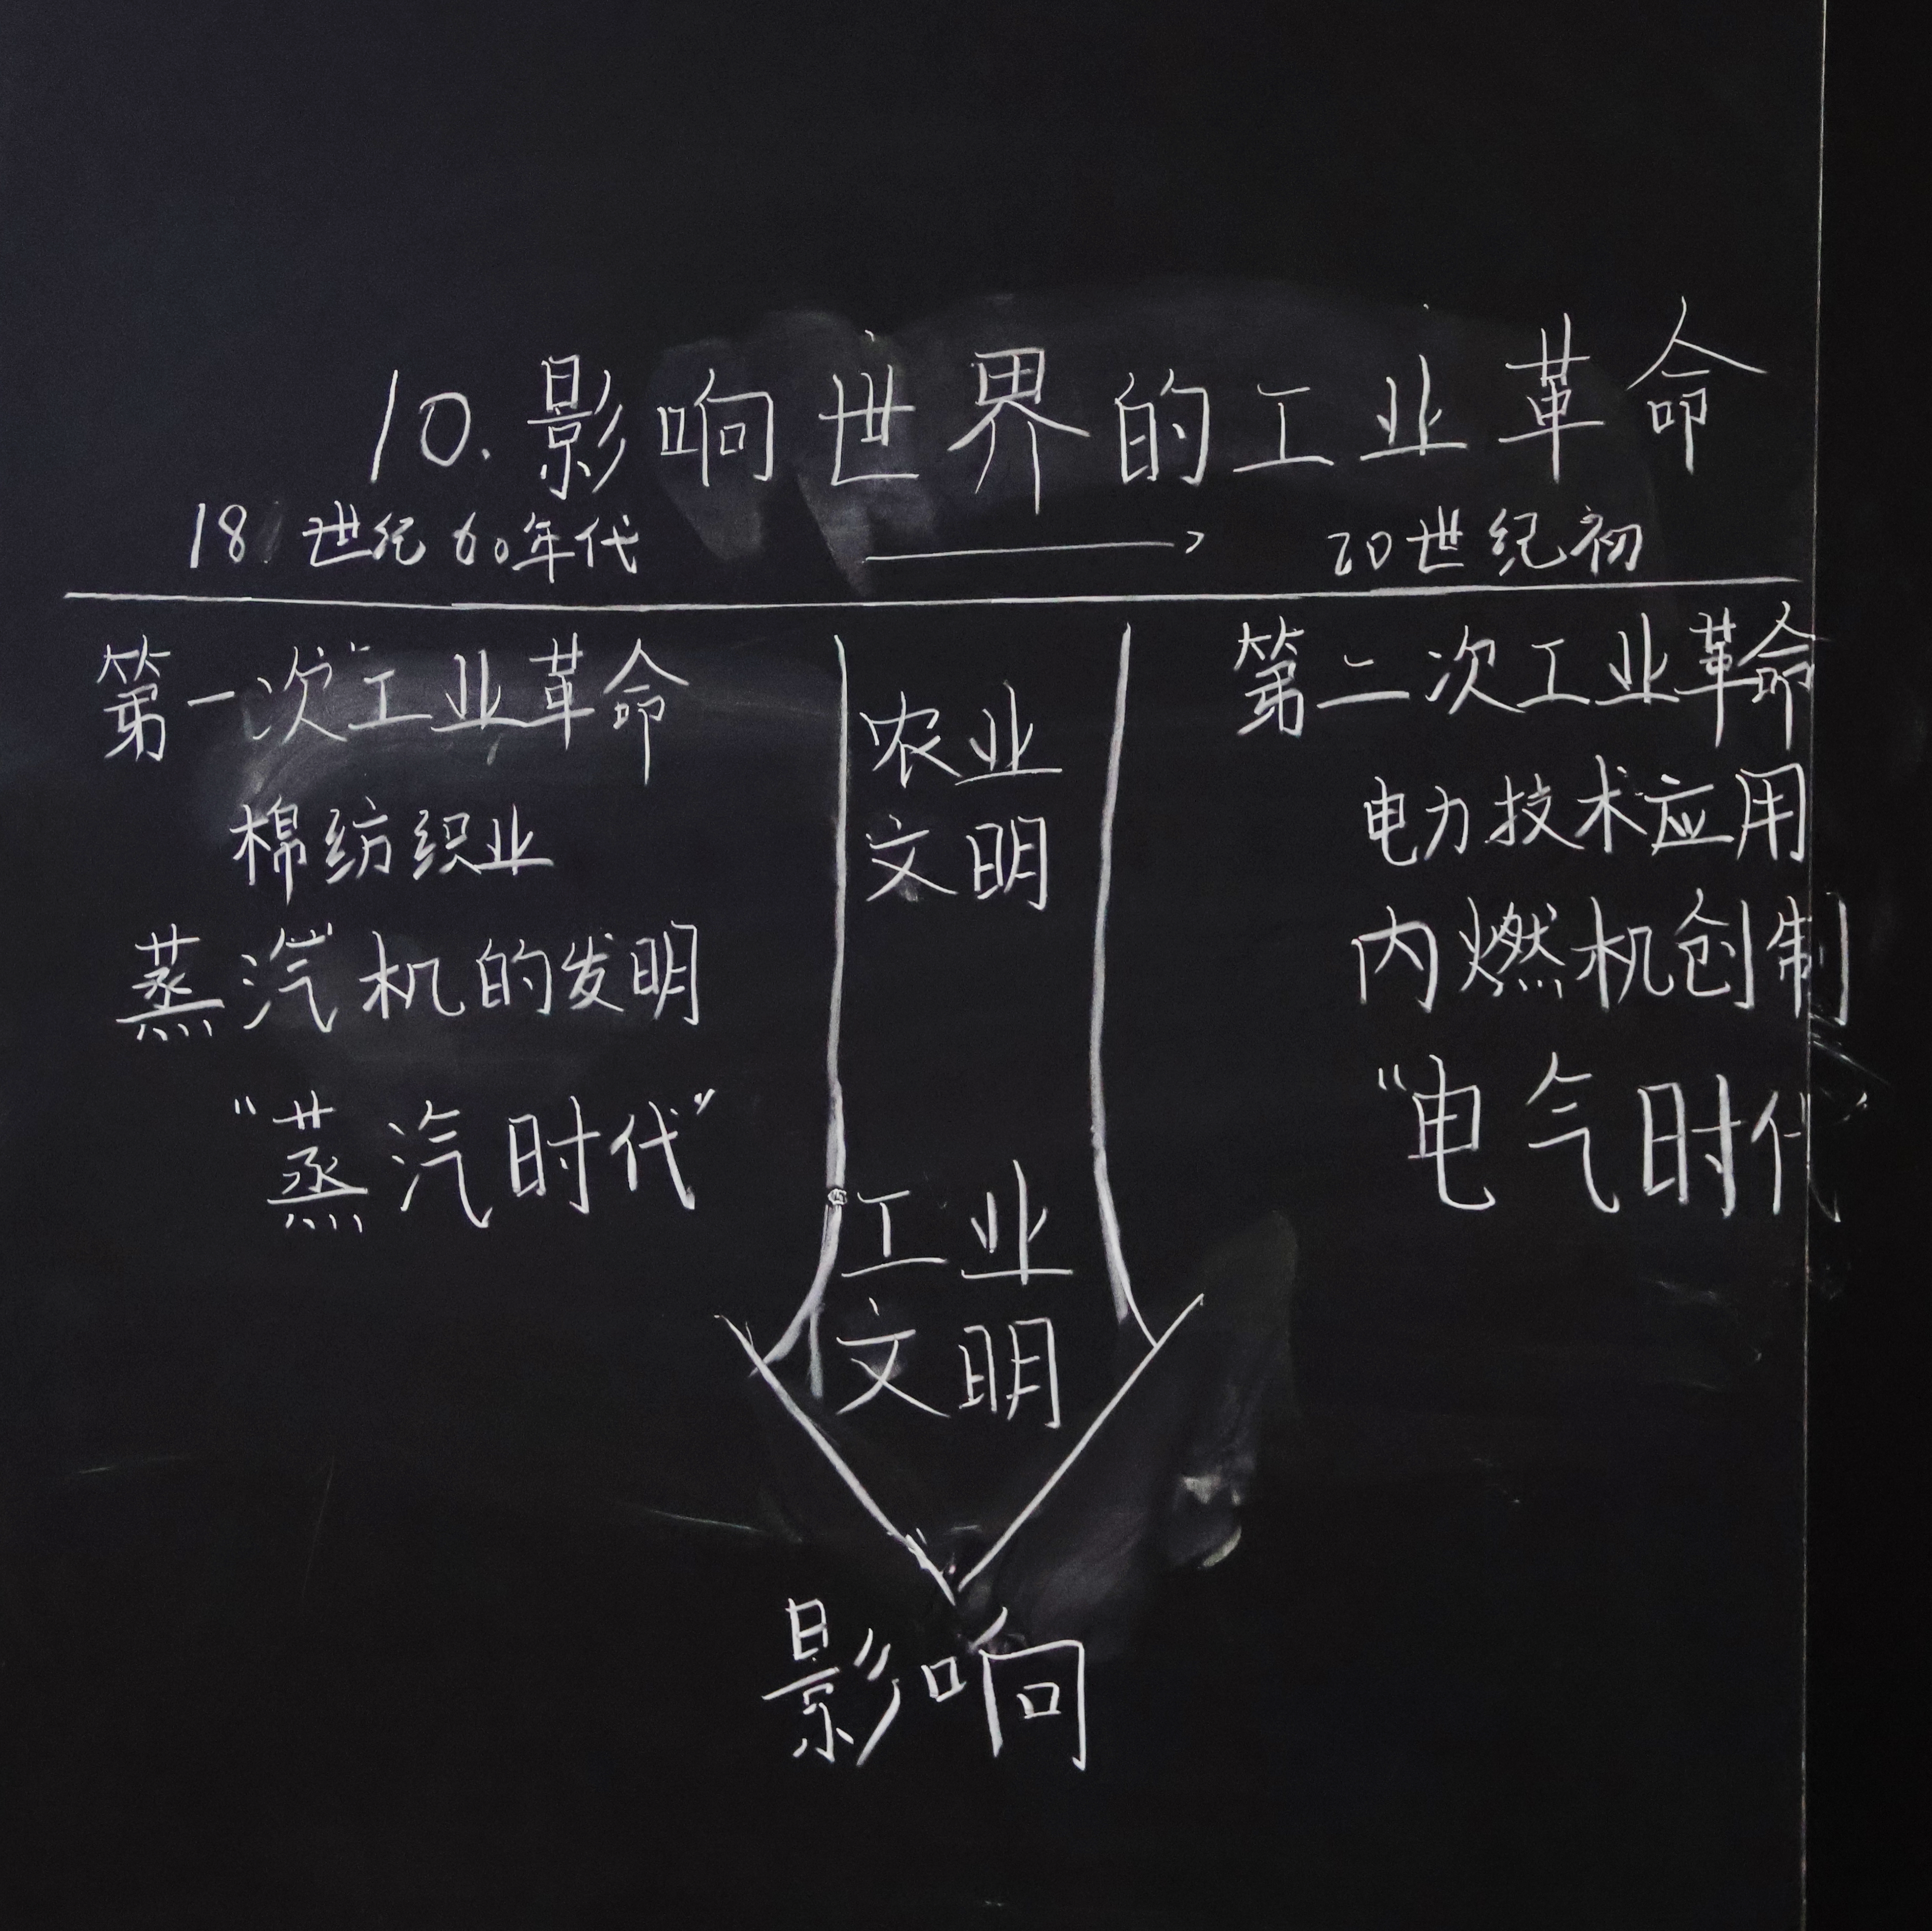 10.影响世界的工业革命
18世纪60年代 → 20世纪初
第一次工业革命
棉纺织业
蒸汽机的发明
“蒸汽时代”
农业
文明
工业
文明
第二次工业革命
电力技术应用
内燃机创制
“电气时代”
影响